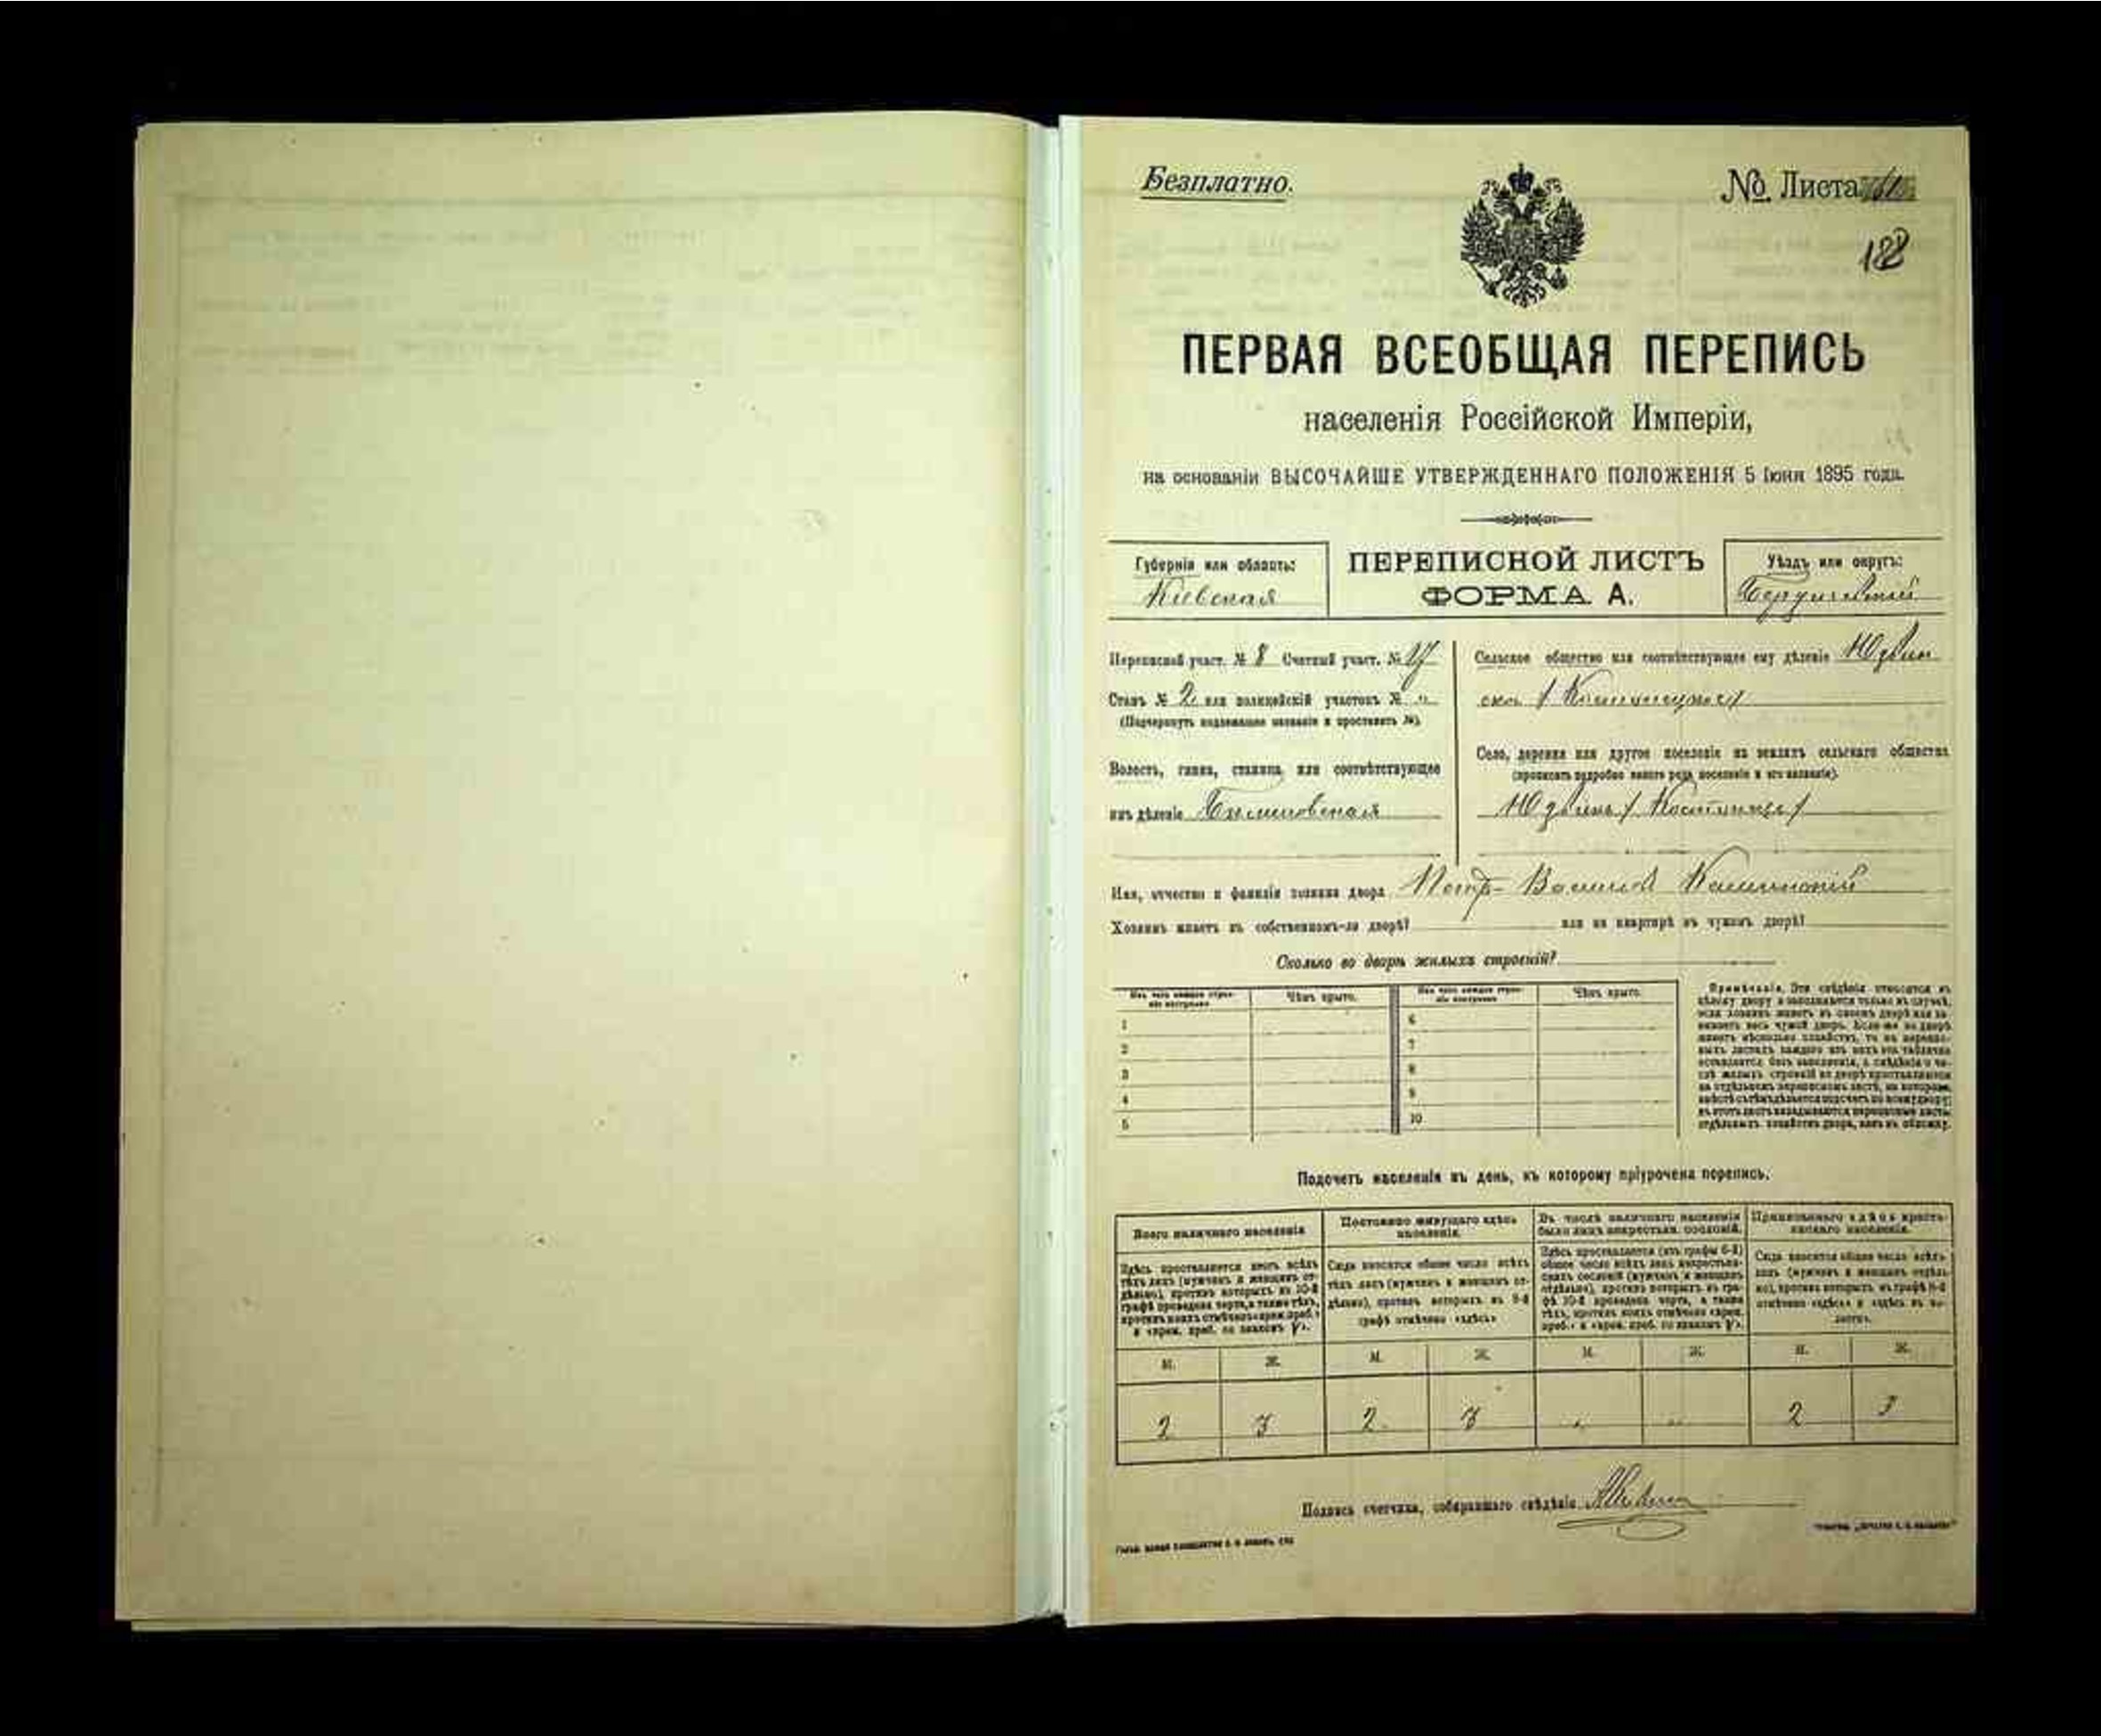 Безплатно.
№ Листа
188
ПЕРВАЯ ВСЕОБЩАЯ ПЕРЕПИСЬ
населенія Россійской Имперіи,
на основаніи ВЫСОЧАЙШЕ УТВЕРЖДЕННАГО ПОЛОЖЕНІЯ 5 Іюня 1895 года.
Губернія или область:
Кіевская
ПЕРЕПИСНОЙ ЛИСТЪ
ФОРМА А.
Уѣздъ или округъ:
Бердичевскій
Переписной участ. № 8 Счетный участ. № 17
Станъ № 2 или полицейскій участокъ № „
(Подчеркнуть надлежащее названіе и проставить №).
Волость, гмина, станица или соотвѣтствующее
имъ дѣленіе
Сельское общество или соотвѣтствующее ему дѣленіе
Село, деревня или другое поселеніе на земляхъ сельскаго общества
(прописать подробно какого рода поселеніе и его названіе).
Имя, отчество и фамилія хозяина двора Петр
Хозяинъ живетъ въ собственномъ-ли дворѣ? или на квартирѣ въ чужомъ дворѣ?
Сколько во дворѣ жилыхъ строеній?
Изъ чего каждое строеніе построено
Чѣмъ крыто.
Изъ чего каждое строеніе построено
Чѣмъ крыто.
1
2
3
4
5
6
7
8
9
10
Примѣчаніе. Эти свѣдѣнія относятся къ
цѣлому двору и заполняются только въ случаѣ,
если хозяинъ живетъ въ своемъ дворѣ или за-
нимаетъ весь чужой дворъ. Если-же во дворѣ
живетъ нѣсколько хозяйствъ, то въ перепис-
ныхъ листахъ каждаго изъ нихъ эта табличка
оставляется безъ заполненія, а свѣдѣнія о чи-
слѣ жилыхъ строеній во дворѣ проставляются
на отдѣльномъ переписномъ листѣ, на которомъ
вмѣстѣ съ тѣмъ дѣлается подсчетъ по всему двору;
въ этотъ листъ вкладываются переписные листы
отдѣльныхъ хозяйствъ двора, какъ въ обложку.
Подсчетъ населенія въ день, къ которому пріурочена перепись.
Всего наличнаго населенія
Здѣсь проставляется итогъ всѣхъ
тѣхъ лицъ (мужчинъ и женщинъ от-
дѣльно), противъ которыхъ въ 10-й
графѣ проведена черта, а также тѣхъ,
противъ коихъ отмѣчено «врем. преб.»
и «врем. преб. со знакомъ V».
Постоянно живущаго здѣсь
населенія.
Сюда вносится общее число всѣхъ
тѣхъ лицъ (мужчинъ и женщинъ от-
дѣльно), противъ которыхъ въ 9-й
графѣ отмѣчено «здѣсь»
Въ числѣ наличнаго населенія
было лицъ некрестьян. сословій.
Здѣсь проставляется (изъ графы 6-й)
общее число всѣхъ лицъ некрестьян-
скихъ сословій (мужчинъ и женщинъ
отдѣльно), противъ которыхъ въ гра-
фѣ 10-й проведена черта, а также
тѣхъ, противъ коихъ отмѣчено «врем.
преб.» и «врем. преб. со знакомъ V».
Приписаннаго здѣсь кресть-
янскаго населенія.
Сюда вносится общее число всѣхъ
лицъ (мужчинъ и женщинъ отдѣль-
но), противъ которыхъ въ графѣ 8-й
отмѣчено «здѣсь» и «здѣсь въ во-
лости».
М. Ж. М. Ж. М. Ж. М. Ж.
2 3 2 3 „ „ 2 3
Подпись счетчика, собиравшаго свѣдѣнія